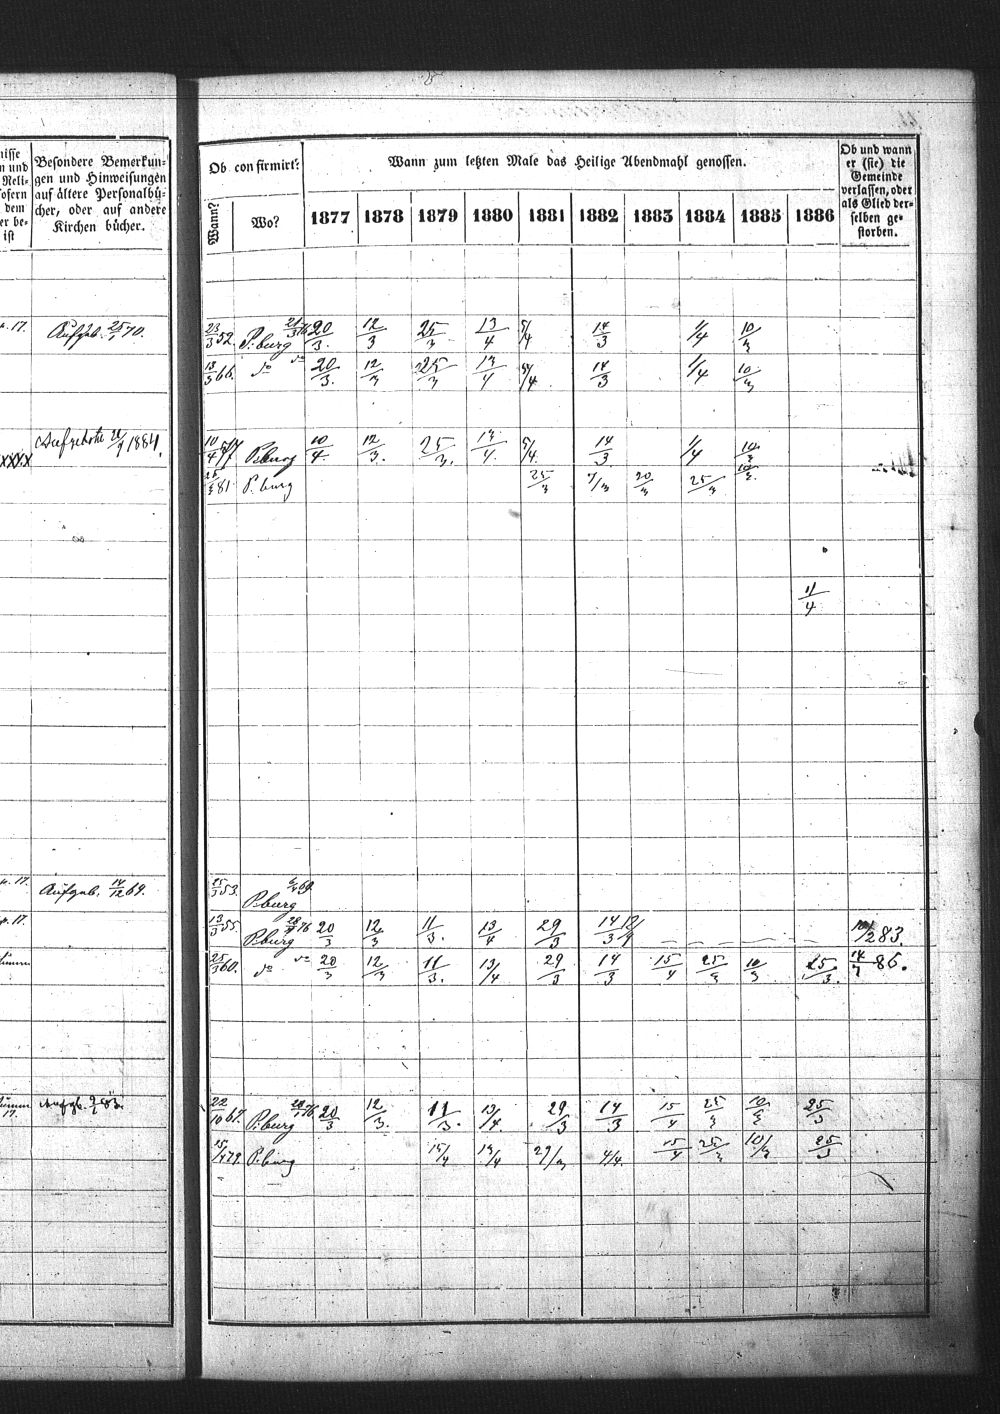 nisse
n und
Reli-
ofern
dem
er be-
ist
Besondere Bemerkun-
gen und Hinweisungen
auf ältere Personalbü-
cher, oder auf andere
Kirchen bücher.
Ob confirmirt?
Wann?
Wo?
Wann zum letzten Male das Heilige Abendmahl genossen.
1877 1878 1879 1880 1881 1882 1883 1884 1885 1886
Ob und wann
er (sie) die
Gemeinde
verlassen, oder
als Glied der-
selben ge-
storben.
p. 17. Aufgeb. 25/1 70. 23/3 52. P.burg 20/3. 12/3 25/3 13/4 5/4 14/3 1/4 10/3
13/3 66. do do 20/3. 12/3 25/3 13/4 5/4 14/3 1/4 10/3
xxxx 1884. 10/4 P.burg 10/4. 12/3. 25/3. 13/4. 5/4. 14/3. 1/4 10/3
81. P.burg 25/3 7/3 20/3 25/3 10/3.
11/4
p. 17. Aufgeb. 14/12 69. 25/3 53. P.burg 69.
p. 17. 13/3 55. P.burg 76 20/3 12/3 11/3. 13/4 29/3 14/3 283.
25/3 60. do do 20/3 12/3 11/3. 13/4 29/3 14/3 15/4 25/3 10/3 25/3. 14/7 86.
17. Aufgb. 83. 22/10 67. P.burg 76 20/3 12/3. 11/3. 13/4. 29/3 14/3 15/4 25/3 10/3 25/3
15/4 79. P.burg 15/4 13/4 29/3 4/4. 15/4 25/3 10/3 25/3